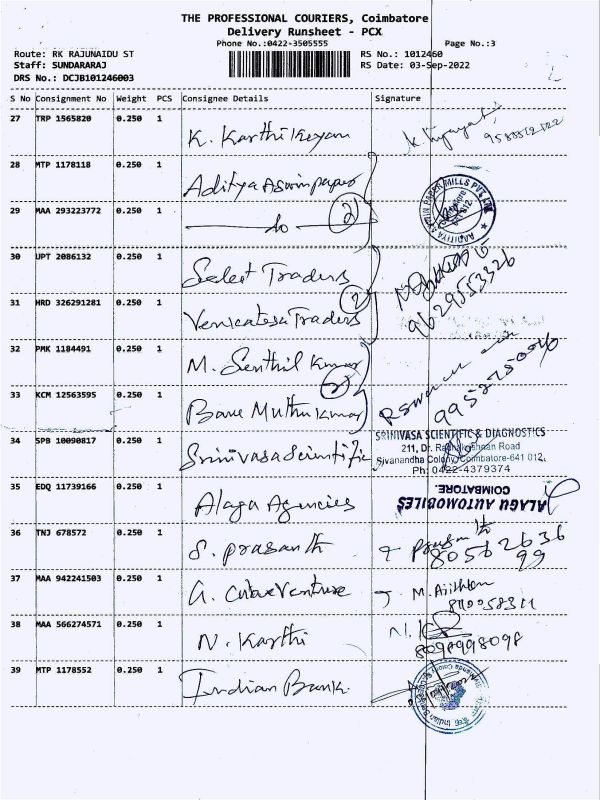 THE PROFESSIONAL COURIERS, Coimbatore
Delivery Runsheet - PCX
Phone No.:0422-3505555
Page No.:3
Route: RK RAJUNAIDU ST
RS No.: 1012460
Staff: SUNDARARAJ
RS Date: 03-Sep-2022
DRS No.: DCJB101246003
S No Consignment No Weight PCS Consignee Details Signature
27 TRP 1565820 0.250 1 K. Karthikeyan
28 MTP 1178118 0.250 1 Aditya Aswin paper
29 MAA 293223772 0.250 1 do 2
AADITIYA ASWIN PAPER MILLS PVT LTD
30 UPT 2086132 0.250 1 Select Traders
9629853326
31 HRD 326291281 0.250 1 Venkatesa Traders
2
32 PMK 1184491 0.250 1 M. Senthil Kumar
2
33 KCM 12563595 0.250 1 Bave Muthukumar
34 SPB 10090817 0.250 1 Srinivasa Scientific
SRINIVASA SCIENTIFIC & DIAGNOSTICS
211, Dr. Radhakrishnan Road
Sivanandha Colony, Coimbatore-641 012.
Ph: 0422-4379374
35 EDQ 11739166 0.250 1 Alagu Agencies
ALAGU AUTOMOBILES
COIMBATORE.
36 TNJ 678572 0.250 1 S. Prasanth
Prasanth
80562636
99
37 MAA 942241503 0.250 1 G. Cube Venture
M. Ajithkm
38 MAA 566274571 0.250 1 N. Karthi
8098998098
39 MTP 1178552 0.250 1 Indian Bank.